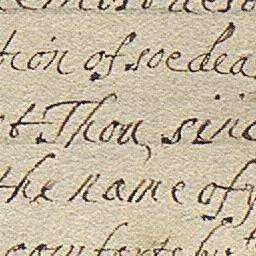 tion of soe dea
t Thou, sinc
the name of y
comforts by